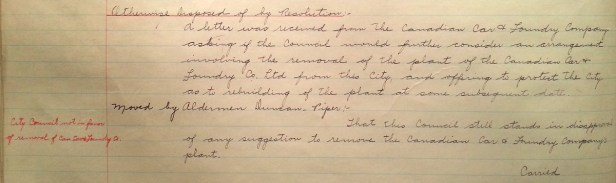 Otherwise Disposed of by Resolution:-
A letter was received from the Canadian Car & Foundry Company
asking if the Council would further consider an arrangement
involving the removal of the plant of the Canadian Car &
Foundry Co. Ltd from this City, and offering to protect the City
as to rebuilding of the plant at some subsequent date.
Moved by Aldermen Duncan - Piper:-
City Council not in favor
of removal of Can Car & Foundry Co.
That this Council still stands in disapproval
of any suggestion to remove the Canadian Car & Foundry Company's
plant.
Carried